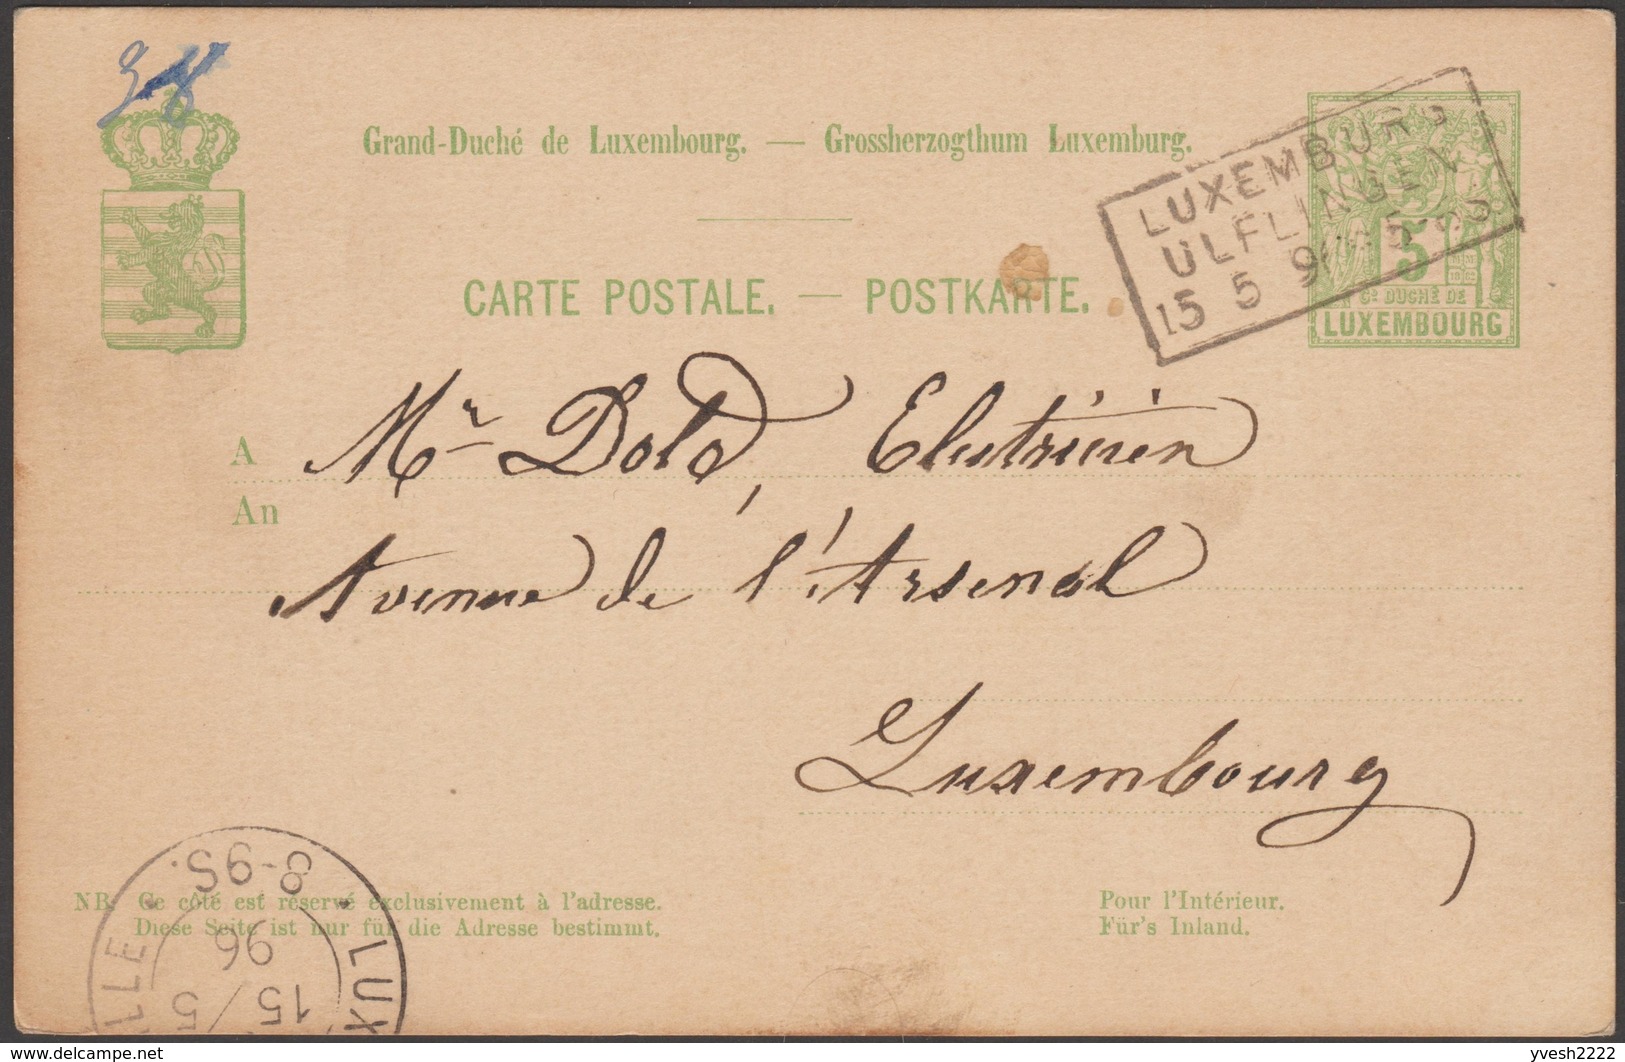 38
Grand-Duché de Luxembourg. — Grossherzogthum Luxemburg.
CARTE POSTALE. — POSTKARTE.
LUXEMBURG
ULFLINGEN
15 5 96
5
Gd DUCHÉ DE
LUXEMBOURG
A
An
Mr Dold, Electricien
Avenue de l'Arsenal
Luxembourg
NB. Ce côté est réservé exclusivement à l'adresse.
Diese Seite ist nur für die Adresse bestimmt.
Pour l'Intérieur.
Für's Inland.
LUX
VILLE
8-9S.
15/5
96
delcampe.net
yvesh2222